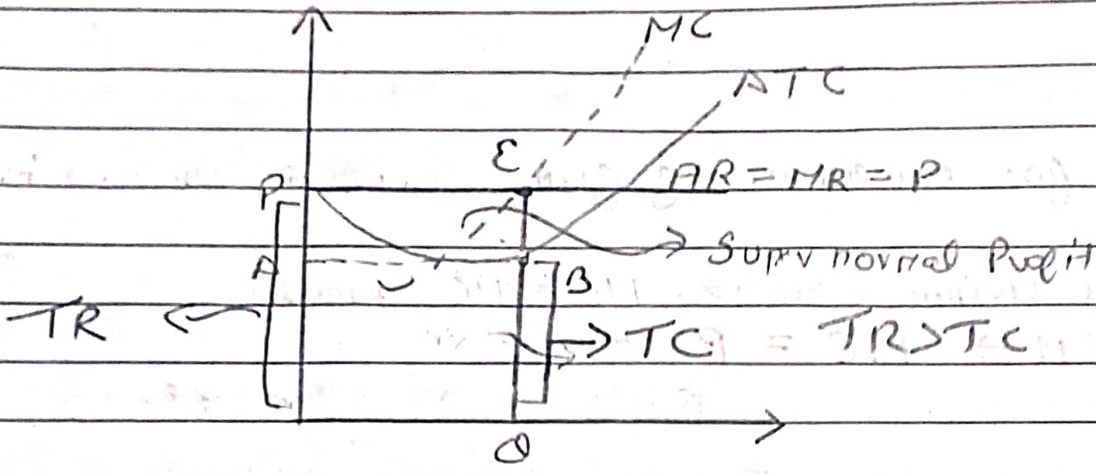 MC
ATC
E
P
AR = MR = P
A
B
Supernormal Profit
TR
TC
TR>TC
Q